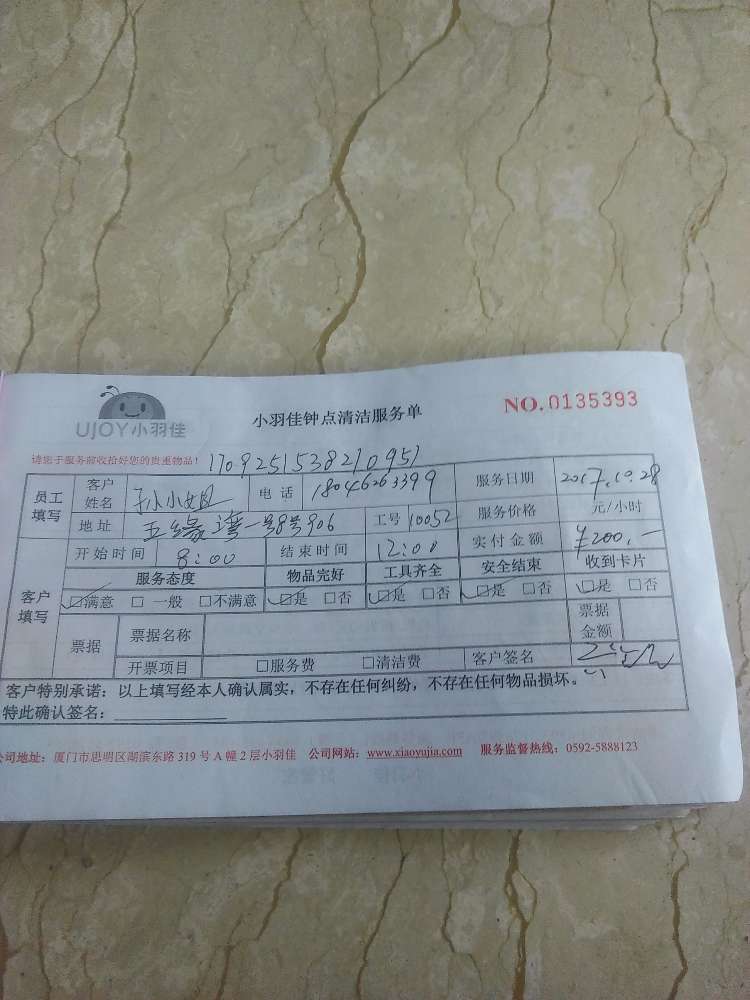 UJOY小羽佳
小羽佳钟点清洁服务单
NO.0135393
请您于服务前收拾好您的贵重物品！
170925153821095
员工填写 客户姓名 孙小姐 电话 18046263399 服务日期 2017.10.28
地址 五缘湾一号8号906 工号 10052 服务价格 元/小时
开始时间 8:00 结束时间 12:00 实付金额 ¥200.-
客户填写 服务态度 物品完好 工具齐全 安全结束 收到卡片
☑满意 □一般 □不满意 ☑是 □否 ☑是 □否 ☑是 □否 ☑是 □否
票据 票据名称 票据金额
开票项目 □服务费 □清洁费 客户签名
客户特别承诺：以上填写经本人确认属实，不存在任何纠纷，不存在任何物品损坏。
特此确认签名：
公司地址：厦门市思明区湖滨东路319号A幢2层小羽佳 公司网站：www.xiaoyujia.com 服务监督热线：0592-5888123